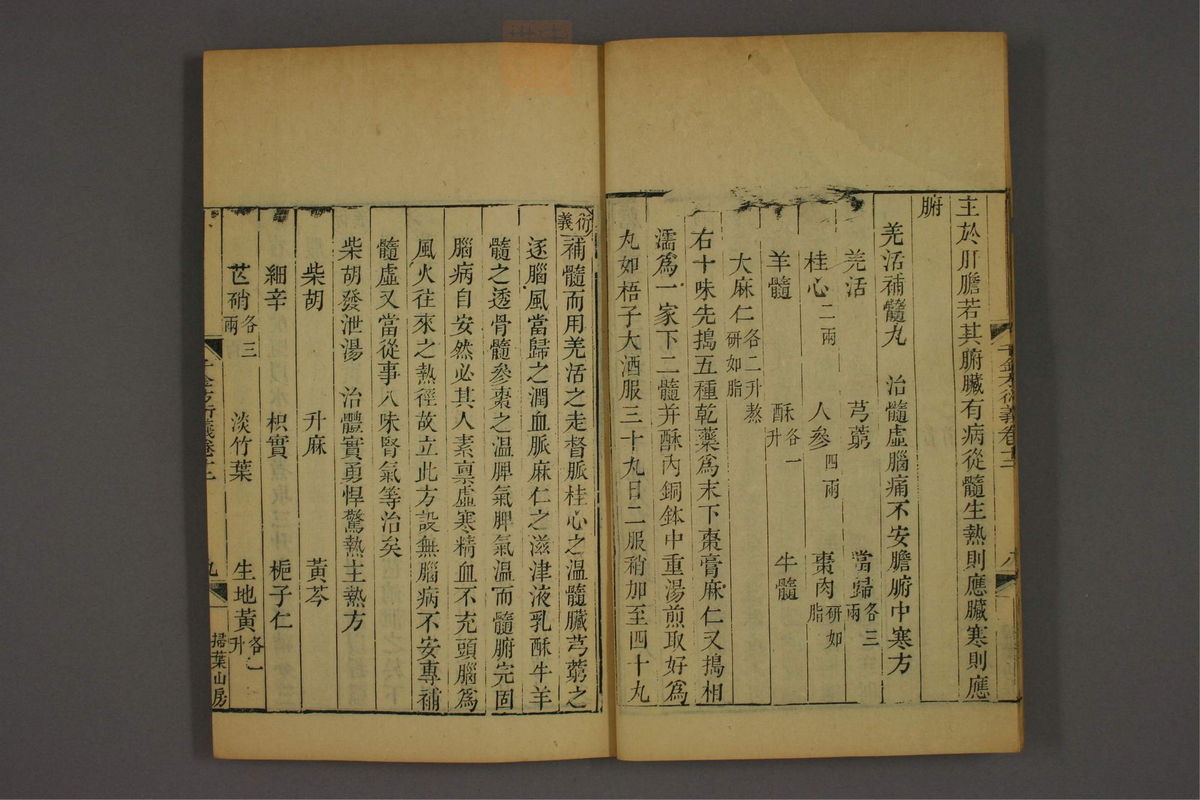 主於肝膽若其腑臟有病從髓生熱則應臟寒則應
腑
羌活補髓丸　治髓虛腦痛不安膽腑中寒方
羌活　芎藭　當歸各三兩
桂心二兩　人參四兩　棗肉研如脂
羊髓　酥各一升　牛髓
大麻仁各二升熬研如脂
右十味先搗五種乾藥爲末下棗膏麻仁又搗相
濡爲一家下二髓并酥內銅鉢中重湯煎取好爲
丸如梧子大酒服三十丸日二服稍加至四十丸
千金方衍義卷十二　八
衍義補髓而用羌活之走督脈桂心之溫髓臟芎藭之
逐腦風當歸之潤血脈麻仁之滋津液乳酥牛羊
髓之透骨髓參棗之溫脾氣脾氣溫而髓腑完固
腦病自安然必其人素禀虛寒精血不充頭腦爲
風火往來之熱徑故立此方設無腦病不安專補
髓虛又當從事八味腎氣等治矣
柴胡發泄湯　治髓實勇悍驚熱主熱方
柴胡　升麻　黃芩
細辛　枳實　梔子仁
芒硝各三兩　淡竹葉　生地黃各一升
千金方衍義卷十二　九　掃葉山房